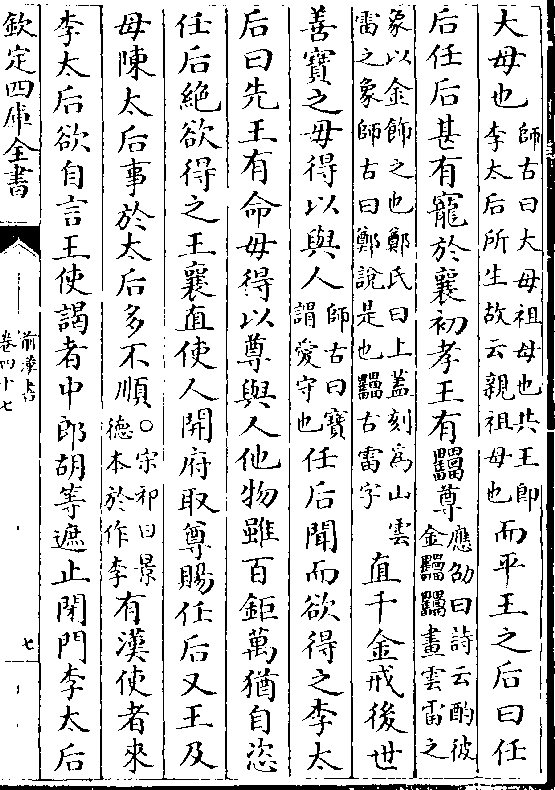 大母也師古曰大母祖母也共王即李太后所生故云親祖母也而平王之后曰任
后任后甚有寵於襄初孝王有𤴁尊應劭曰詩云酌彼金𤴁𤴁畫雲雷之
象以金飾之也鄭氏曰上蓋刻為山雲雷之象師古曰鄭說是也𤴁古雷字直千金戒後世
善寶之毋得以與人師古曰寶謂愛守也任后聞而欲得之李太
后曰先王有命毋得以尊與人他物雖百鉅萬猶自恣
任后絕欲得之王襄直使人開府取尊賜任后又王及
母陳太后事於太后多不順○宋祁曰景德本於作李有漢使者來
李太后欲自言王使謁者中郎胡等遮止閉門李太后
欽定四庫全書
前漢書
卷四十七
七